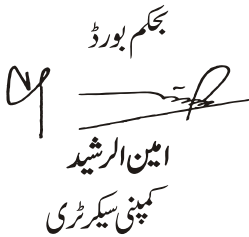 بحکم بورڈ
امین الرشید
کمپنی سیکرٹری